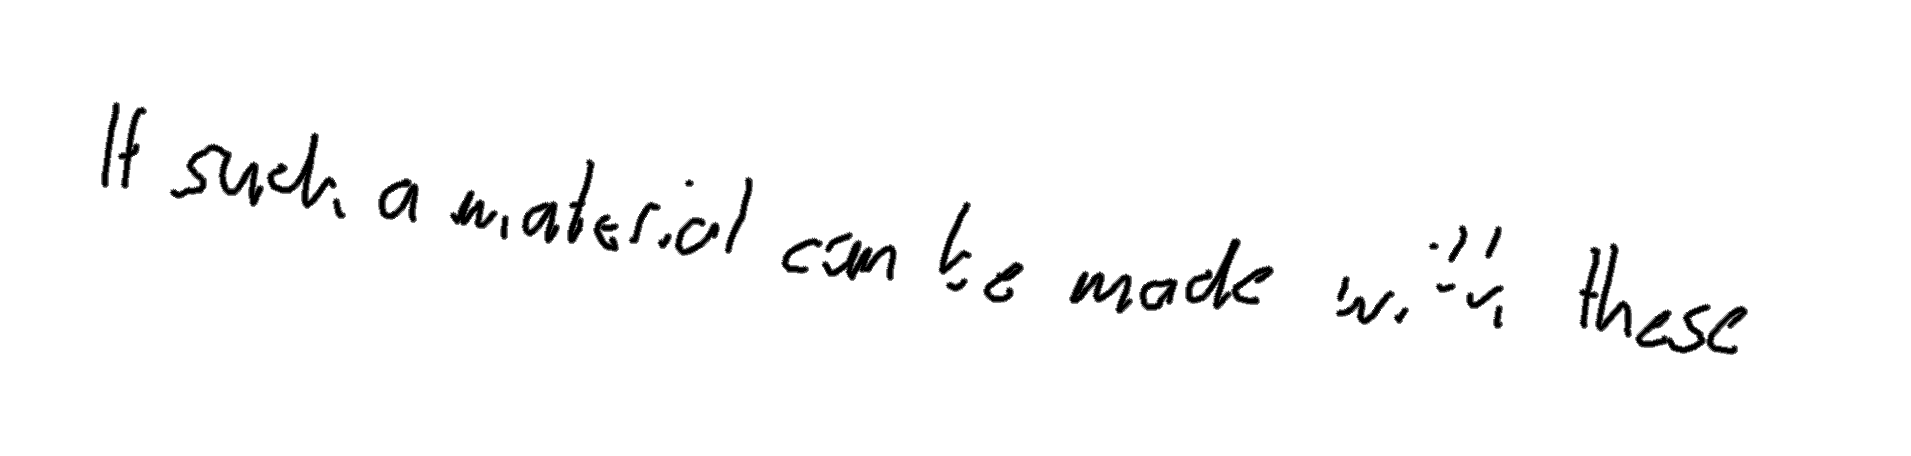 If such a material can be made with these